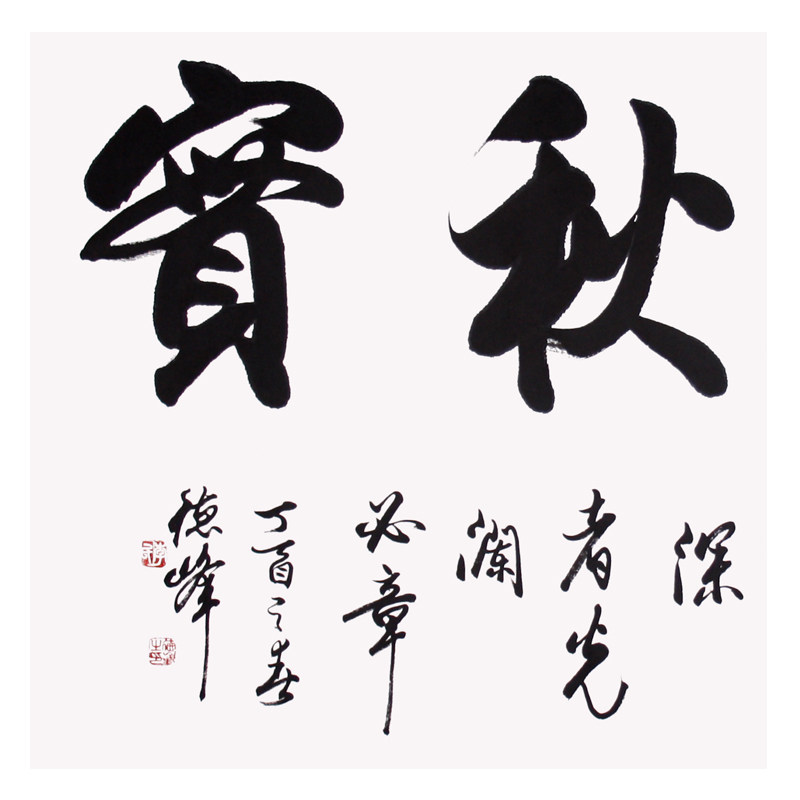 秋實
深
者光
瀾
必章
丁酉之春
德峰